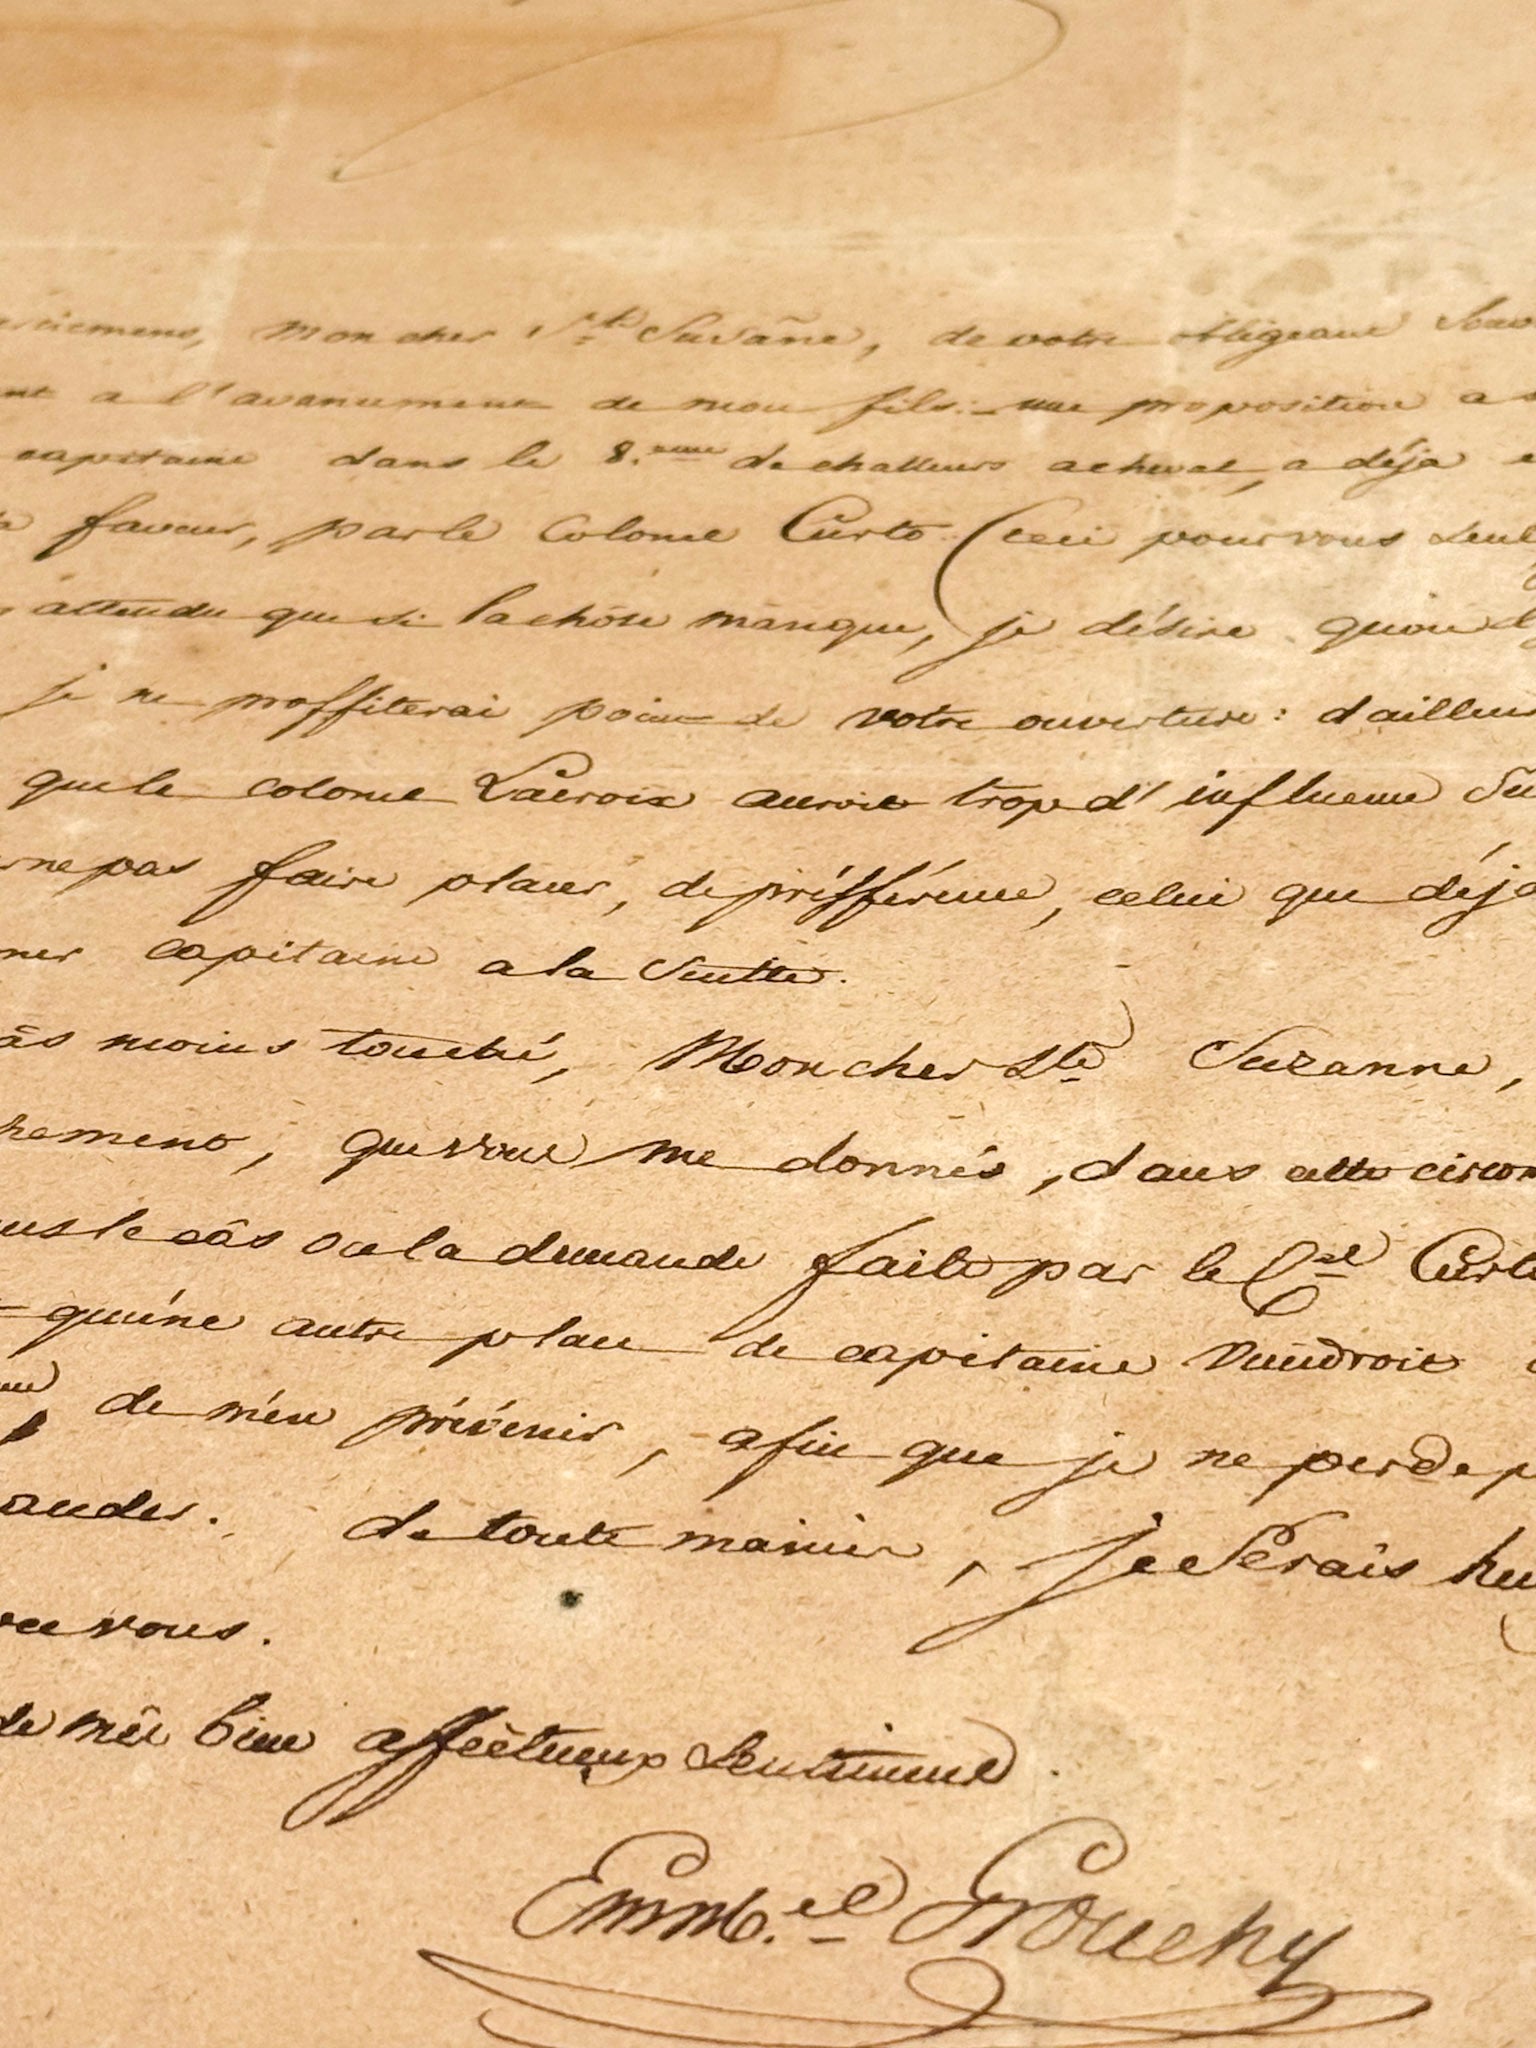 mon cher Ste Susãne, de votre obligeant
a l'avancement de mon fils:- une proposition a
capitaine dans le 8.eme de chasseurs acheval, a déja
faveur, parle Colonel Curto (ceci pourvous seul
attendu que si lachôse manque, je désire quon
je ne proffiterai point de votre ouverture: dailleurs
quele colonel Lacroix auroit trop d'influence
pas faire placer, de préfférence, celui que déja
capitaine ala suitte.
moins touché, Moncher Ste Suzanne,
que vous me donnés, dans cette circon
le câs ou la demande faite par le Cel Curto
qu'une autre place de capitaine viendroit
de m'en prévenir, afin que je ne perde
de toute maniere, je serais
vous.
de mês bien affectueux sentimens.
Emmb.el Grouchy